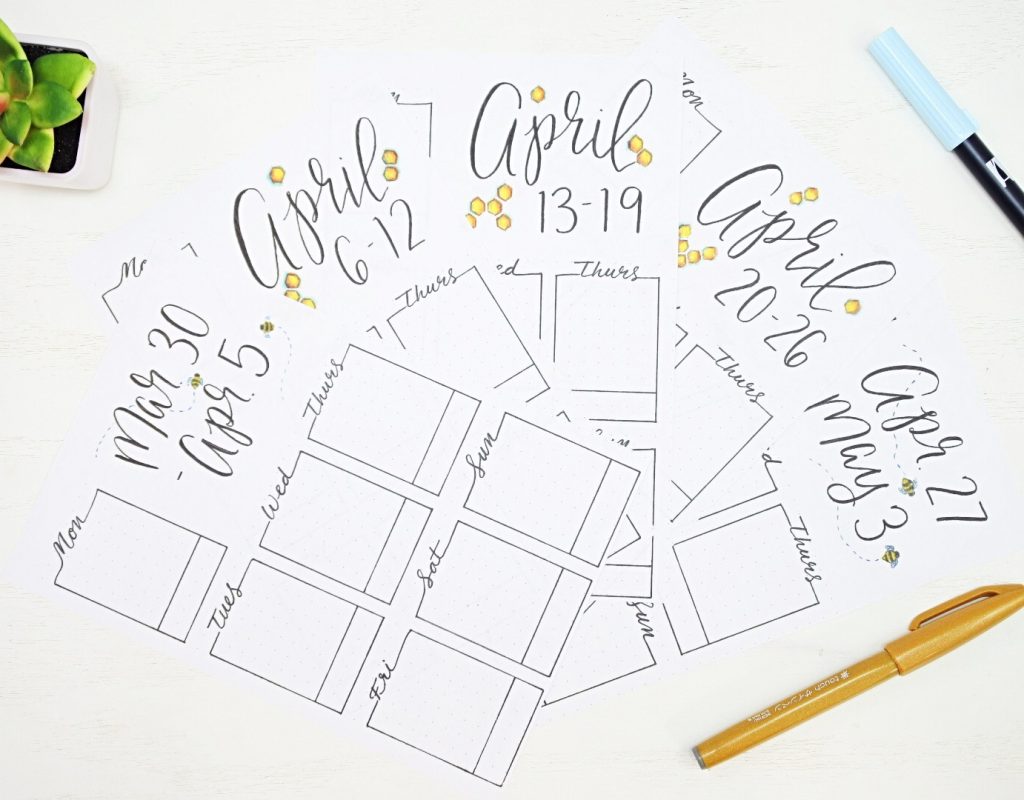 Mar 30
- Apr. 5
Mon
Tues
Wed
Thurs
Fri
Sat
Sun
April
6-12
Thurs
April
13-19
Thurs
Mon
April
20-26
Thurs
Sun
Apr. 27
May 3
Thurs
touch サインペン